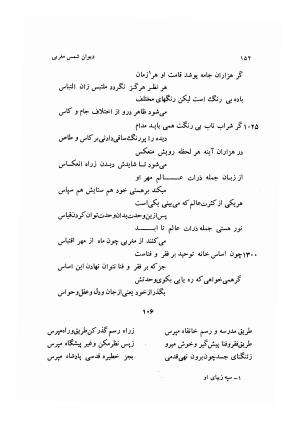 ۱۵۴
دیوان شمس مغربی
گر هزاران جامه پوشد قامت او هر زمان
هر نظر هرگز نگردد ملتبس زان التباس
باده بی رنگست لیکن رنگهای مختلف
می‌شود ظاهر درو از اختلاف جام و کاس
۱۰۲۵ گر شراب ناب بی رنگت همی باید مدام
دیده را پر رنگ ساقی دار نی بر کاس و طاس
در هزاران آینه هر لحظه رویش منعکس
می‌شود تا شایدش دیدن ز راه انعکاس
از زبان جمله ذرات عالم مهر او
میکند بر هستی خود هم ستایش هم سپاس
هر یکی از کثرت عالم که می‌بینی یکی است
پس از این وحدت بدان وحدت توان کردن قیاس
نور هستی جمله ذرات عالم تا ابد
می کنند از مغربی چون ماه از مهر اقتباس
۱۳۰۰ چون اساس خانه توحید بر فقر و فناست
جز که بر فقر و فنا نتوان نهادن این اساس
گر همی خواهی که ره یابی بکوی وحدتش
بگذر از خود یعنی از جان و دل و عقل و حواس
۱۰۶
طریق مدرسه و رسم خانقاه مپرس
ز راه رسم گذر کن طریق و راه مپرس
طریق فقر و فنا پیش گیر و خوش میرو
ز پس نظر مکن و غیر پیشگاه مپرس
ز تنگنای جسد چون برون نهی قدمی
بجز خطیره قدسی پادشاه مپرس
۱- سپه زیبای او